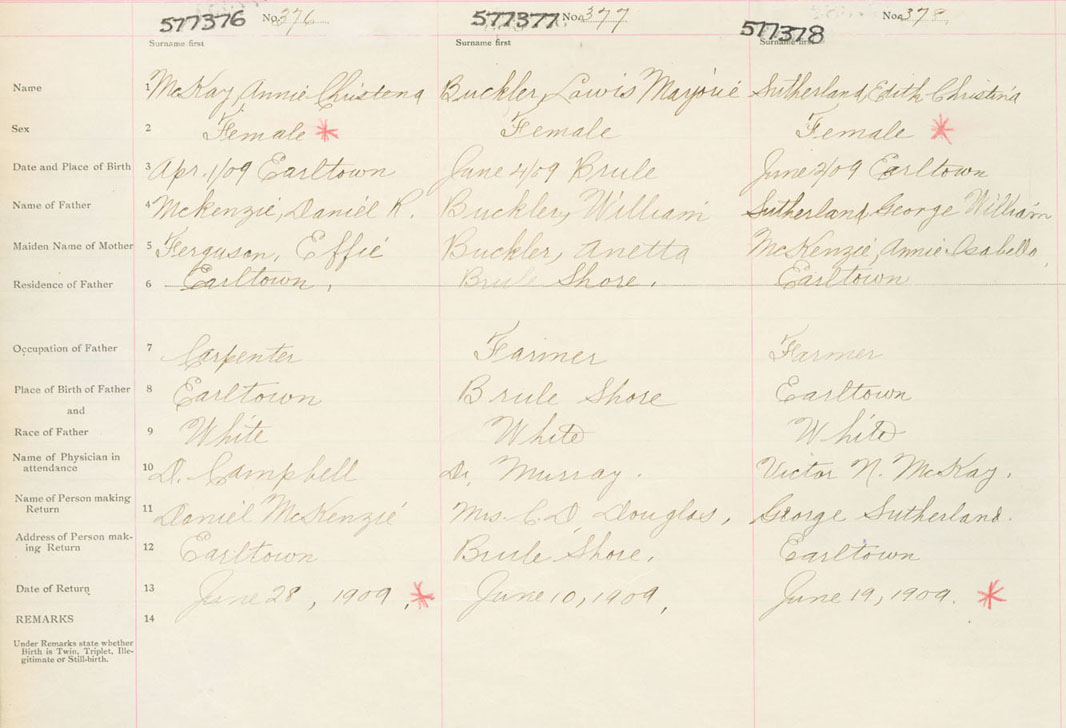 577376 No. 376 577377 No. 377 577378 No. 378
Surname first Surname first Surname first
Name 1 McKay, Annie Christena Buckler, Lowis Marjorie Sutherland, Edith Christina
Sex 2 Female Female Female
Date and Place of Birth 3 Apr. 1/09 Earltown June 4/09 Brule June 2/09 Earltown
Name of Father 4 Mckenzie, Daniel R. Buckler, William Sutherland, George William
Maiden Name of Mother 5 Ferguson, Effie Buckler, Anetta McKenzie, Annie Isabella,
Residence of Father 6 Earltown, Brule Shore. Earltown
Occupation of Father 7 Carpenter Farmer Farmer
Place of Birth of Father 8 Earltown Brule Shore Earltown
and
Race of Father 9 White White White
Name of Physician in
attendance 10 D. Campbell Dr. Murray. Victor N. McKay.
Name of Person making
Return 11 Daniel McKenzie Mrs. C. D. Douglas, George Sutherland.
Address of Person mak-
ing Return 12 Earltown Brule Shore. Earltown
Date of Return 13 June 28, 1909, June 10, 1909, June 19, 1909.
REMARKS 14
Under Remarks state whether
Birth is Twin, Triplet, Ille-
gitimate or Still-birth.